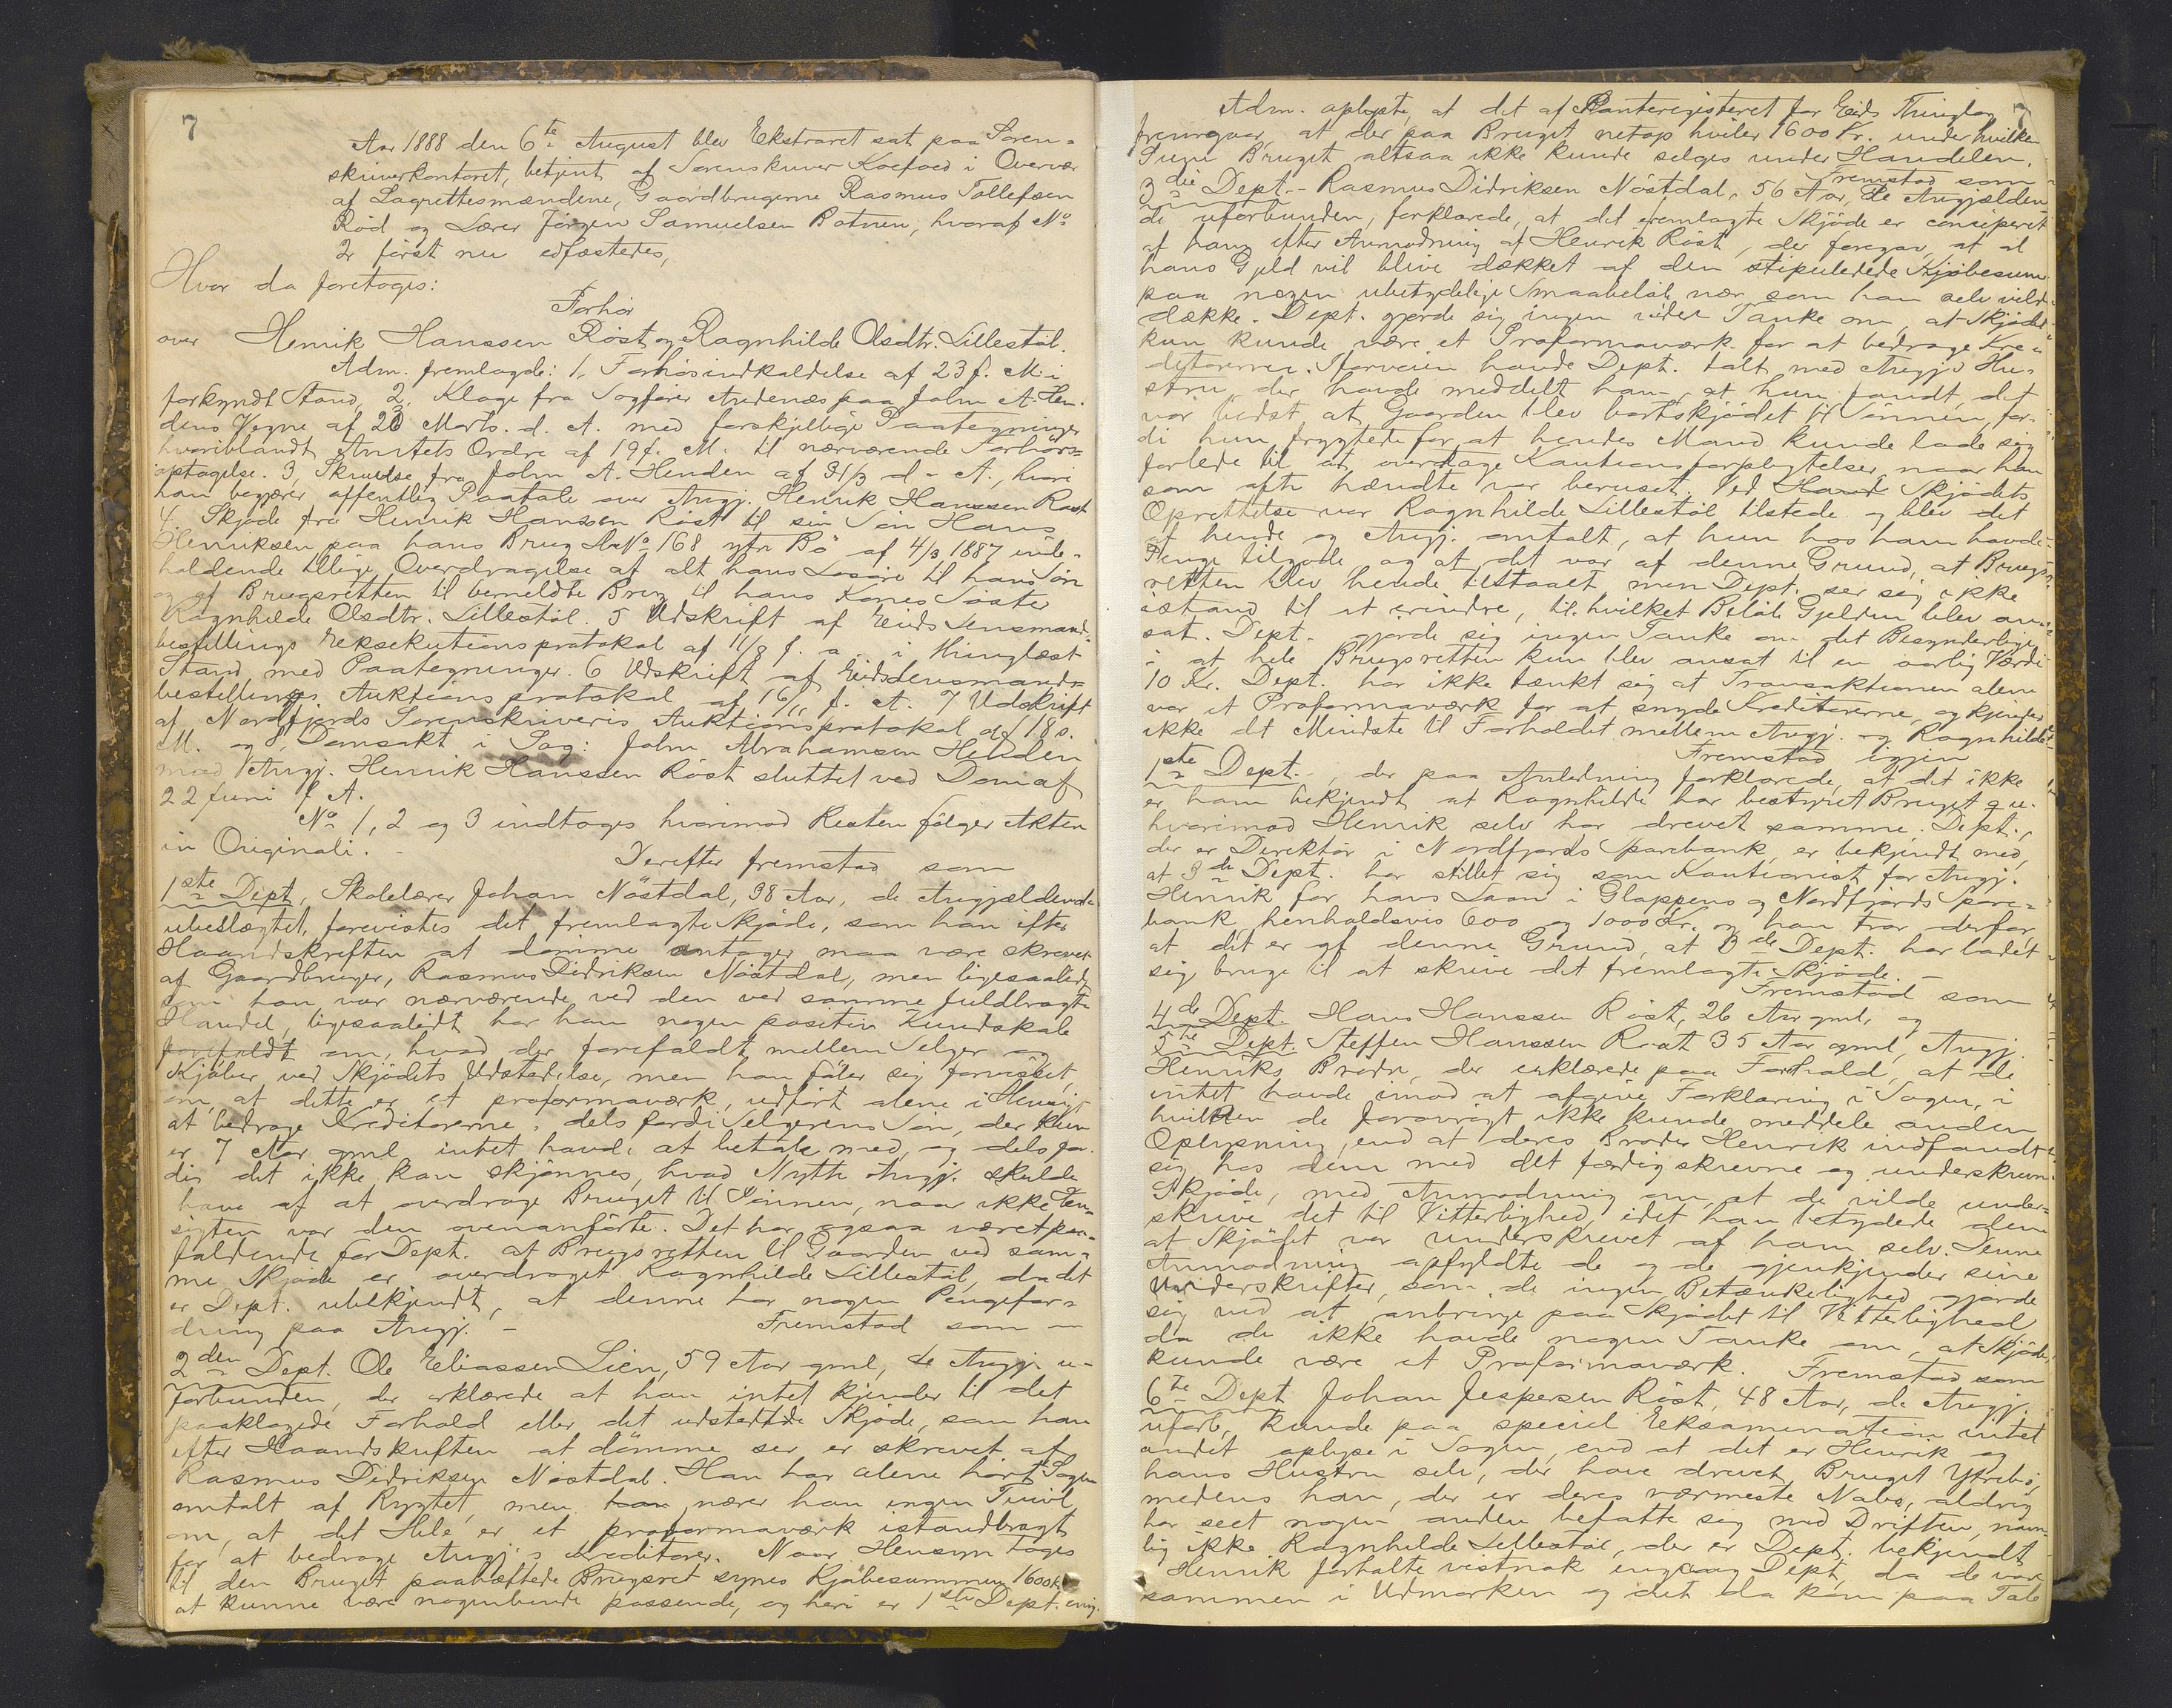 7
Aar 1888 den 6te August blev Ekstraret sat paa Soren-
skriverkontoret, betjent af Sorenskriver Koefoed i Overvær
af Lagrettesmændene, Gaardbrugerne Rasmus Tollefsen
Röd og Lærer Jörgen Samuelsen Botnen, hvoraf No
2 först nu edfæstedes,
Hvor da foretoges:
Forhör
over Henrik Hanssen Röst og Ragnhilde Olsdtr. Lillestöl.
Adm. fremlagde: 1, Forhörsindkaldelse af 23 f. M. i
forkyndt Stand, 2, Klage fra Sagförer Andenæs paa John A. Hen-
dens Vegne af 23 Marts d. A. med forskjellige Paategninger
hvoriblandt Amtets Ordre af 19 f. M. til nærværende Forhörs-
optagelse. 3, Skrivelse fra John A. Henden af 31/3 d. A., hvori
han begjærer offentlig Paatale over Angj. Henrik Hanssen Röst
4. Skjöde fra Henrik Hanssen Röst til sin Sön Hans
Henriksen paa hans Brug No 168 ytre Bö af 4/3 1887 inde-
holdende tillige Overdragelse af alt hans Lösöre til hans Sön
og af Brugsretten til bemeldte Brug til hans Kones Söster
Ragnhilde Olsdtr. Lillestöl. 5 Udskrift af Eids Lensmands-
bestillings Eksekutionsprotokol af 11/8 f. a. i thinglæst
Stand med Paategninger. 6 Udskrift af Eids Lensmands-
bestillings Auktionsprotokol af 16/ f. A. 7 Udskrift
af Nordfjords Sorenskriveris Auktionsprotokol af 18 s.
M. og 8, Domsakt i Sag: John Abrahamsen Henden
mod Angj. Henrik Hanssen Röst sluttet ved Dom af
22 Juni f. A.
No 1, 2 og 3 indtoges hvorimod Resten fölger Akten
in Originali. -
Derefter fremstod som
1ste Dept, Skolelærer Johan Nöstdal, 38 Aar, de Angjældende
ubeslægtet, forevistes det fremlagte Skjöde, som han efter
Haandskriften at dömme antager maa være skrevet
af Gaardbruger, Rasmus Didriksen Nöstdal, men ligesaalidt
som han var nærværende ved den ved samme fuldbragte
Handel, ligesaalidt har han nogen positiv Kundskab
forefaldt om, hvad der forefaldt mellem Selger og
Kjöber ved Skjödets Udstedelse, men han föler sig forvisset
om, at dette er et proformaværk, udfört alene i Hensigt
at bedrage Kreditorerne, dels fordi Selgerens Sön, der kun
er 7 Aar gml intet havde at betale med, og dels for-
di det ikke kan skjönnes, hvad Nytte Angj. skulde
have af at overdrage Bruget til Sönnen, naar ikke Hen-
sigten var den ovenanförte. Det har ogsaa været paa-
faldende for Dept. at Brugsretten til Gaarden ved sam-
me Skjöde er overdraget Ragnhilde Lillestöl, da det
er Dept. ubekjendt, at denne har nogen Pengefor-
dring paa Angj. - Fremstod som -
2den Dept. Ole Eliassen Lien, 59 Aar gml, de Angj. u-
forbunden, der erklærede at han intet kjender til det
paaklagede Forhold eller det udstedte Skjöde, som han
efter Haandskriften at dömme ser er skrevet af
Rasmus Didriksen Nöstdal. Han har alene hört Sagen
omtalt af Rygtet, men han nærer han ingen Tvivl
om, at det Hele er et proformaværk istandbragt
for at bedrage Angj's Kreditorer. Naar Hensyn tages
til den Bruget paahæftede Brugsret synes Kjöbesummen 1600 Kr
at kunne være nogenlunde passende, og heri er 1ste Dept. enig.
7
Adm. oplyste, at det af Panteregisteret for Eids Thinglag
fremgaar, at der paa Bruget netop hviler 1600 Kr. under hvilken
Sum Bruget altsaa ikke kunde selges under Handelen.
Fremstod som
3die Dept. - Rasmus Didriksen Nöstdal, 56 Aar, de Angjælden-
de uforbunden, forklarede, at det fremlagte Skjöde er conciperet
af ham efter Anmodning af Henrik Röst, der foregav, at al
hans Gjeld vil blive dækket af den stipulerede Kjöbesum
paa nogen ubetydelige Smaabelöb nær som han selv vilde
dække. Dept. gjorde sig ingen Tanke om, at Skjödet
kun kunde være et Proformaværk for at bedrage Kre-
ditorerne. Forveien havde Dept. talt med Angj's Hu-
stru, der havde meddelt ham, at hun fandt, det
var bedst at Gaarden blev bortskjödet til Sönnen, for-
di hun frygtede for, at hendes Mand kunde lade sig
forlede til at overtage Kautionsforpligtelser, naar han
som ofte hændte var beruset. Ved Hand Skjödets
Oprettelse var Ragnhilde Lillestöl tilstede og blev det
af hende og Angj. omtalt, at hun hos ham havde
Penge tilgode, og at det var af denne Grund, at Brugs-
retten blev hende tilstaaet men Dept. ser sig ikke
istand til at erindre, til hvilket Belöb Gjelden blev an-
sat. Dept. gjorde sig ingen Tanke om det Besynderlige
i at hele Brugsretten kun blev ansat til en aarlig Værdi
10 Kr. Dept. har ikke tænkt sig at Transaktionen alene
var et Proformaværk for at snyde Kreditorerne, og kjender
ikke det Mindste til Forholdet mellem Angj. og Ragnhilde.
Fremstod igjen
1ste Dept. -, der paa Anledning forklarede, at det ikke
er ham bekjendt, at Ragnhilde har bestyret Bruget qu.
hvorimod Henrik selv har drevet samme. Dept.,
der er Direktör i Nordfjords Sparebank, er bekjendt med,
at 3die Dept. har stillet sig som Kautionist for Angj.
Henrik for hans Laan i Gloppens og Nordfjords Spare-
bank, henholdsvis 600 og 1000 Kr. og han tror derfor,
at det er af denne Grund, at 3die Dept. har ladet
sig bruge til at skrive det fremlagte Skjöde. -
Fremstod som
4de Dept. Hans Hanssen Röst, 26 Aar gml, og
5te Dept. Steffen Hanssen Röst 35 Aar gml, Angj.
Henriks Brödre, der erklærede paa Forhold, at de
intet havde imod at afgive Forklaring i Sagen, i
hvilken de forövrigt ikke kunde meddele anden
Oplysning, end at deres Broder Henrik indfandt
sig hos dem med det færdig skrevne og underskrevne
Skjöde, med Anmodning om, at de vilde under-
skrive det til Vitterlighed, idet han betydede dem
at Skjödet var underskrevet af ham selv. Denne
Anmodning opfyldte de og de gjenkjender sine
Underskrifter, som de ingen Betænkelighed gjorde
sig ved at anbringe paa Skjödet til Vitterlighed
da de ikke havde nogen Tanke om, at Skjödet
kunde være et Proformaværk. Fremstod som
6te Dept Johan Jespersen Röst, 48 Aar, de Angj.
uforb, kunde paa speciel Eksamination intet
andet oplyse i Sagen, end at det er Henrik og
hans Hustru selv, der have drevet Bruget Ytrebö,
medens han, der er deres nærmeste Nabo, aldrig
har seet nogen anden befatte sig med Driften, nem-
lig ikke Ragnhilde Lillestöl, der er Dept. bekjendt.
Henrik fortalte vistnok engang Dept, da de var
sammen i Udmarken og det da kom paa Tale